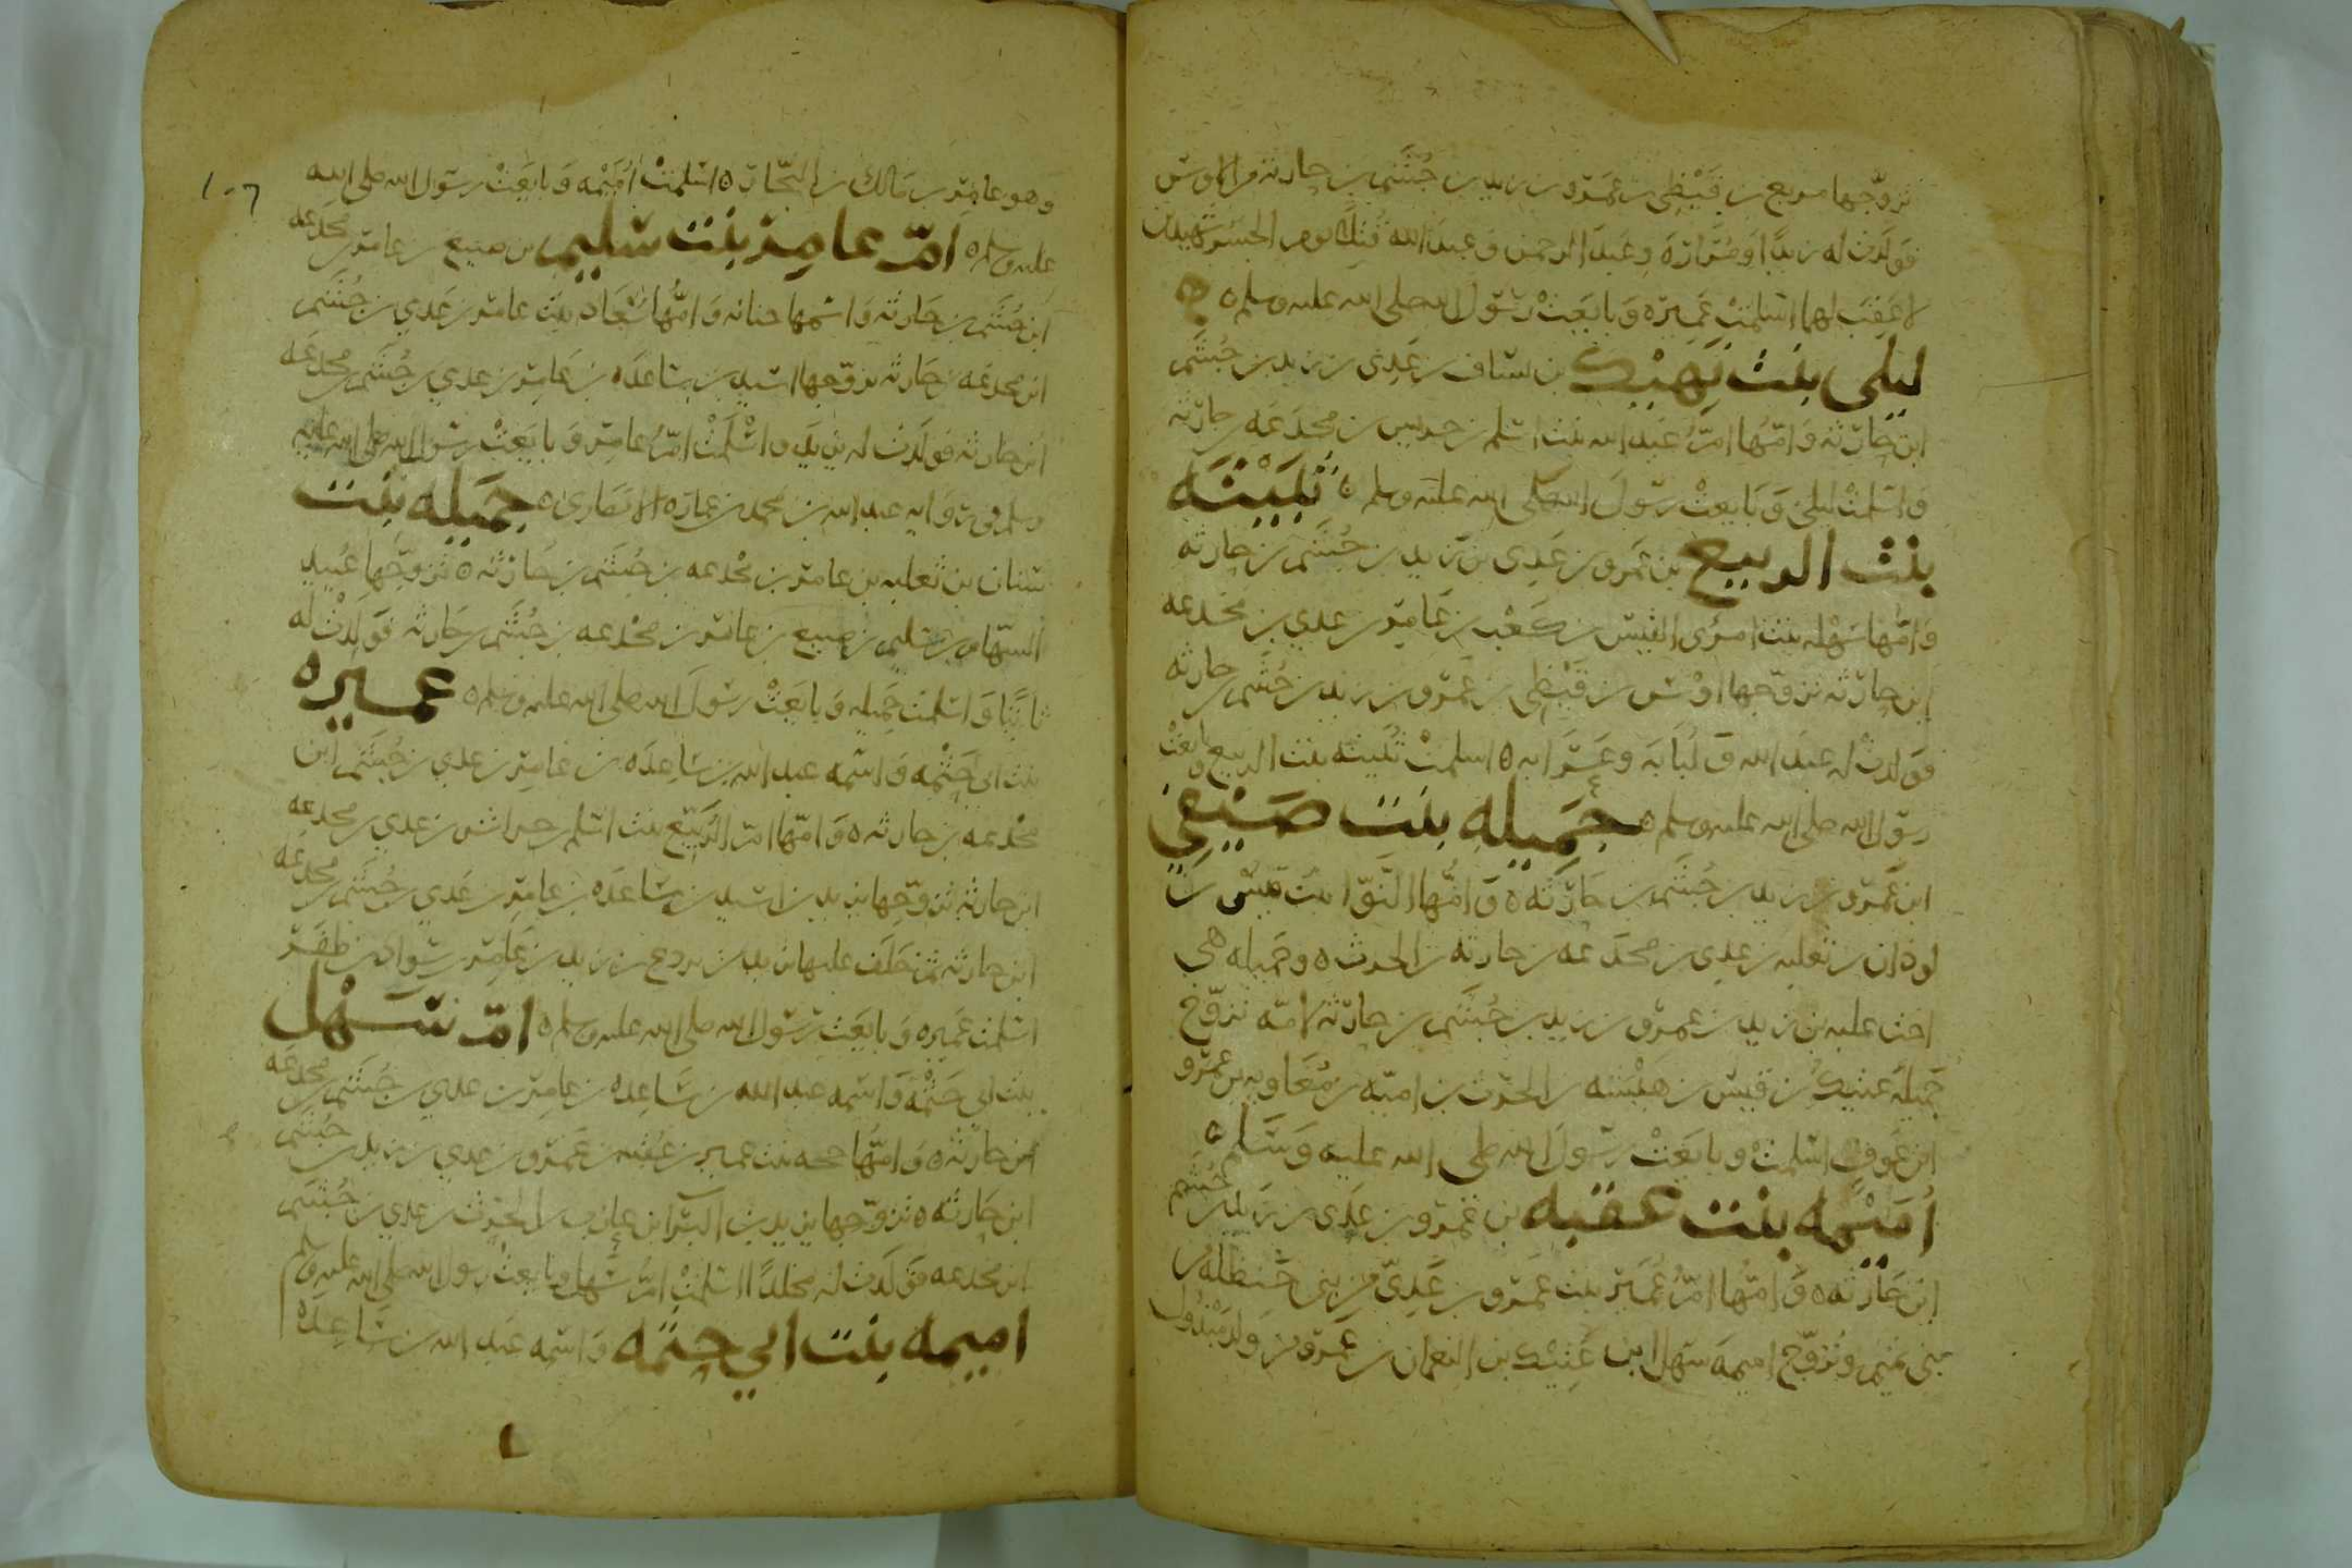 تزوجها مربع بن قيظي بن عمرو بن زيد بن جشم بن حارثه من الاوس
فولدت له زيدا وضراره وعبد الرحمن وعبد الله قتلا يوم الجسر شهيدين
لا عقب لهما اسلمت عميره وبايعت رسول الله صلى الله عليه وسلم
ليلى بنت نهيك بن اساف بن عدي بن زيد بن جشم
ابن حارثه وامها ام عبد الله بنت اسلم بن حريس بن مجدعه بن حارثه
واسلمت ليلى وبايعت رسول الله صلى الله عليه وسلم ثبيته
بنت الربيع بن عمرو بن عدي بن زيد بن جشم بن حارثه
وامها سهله بنت امرئ القيس بن كعب بن عامر بن عدي بن مجدعه
ابن حارثه تزوجها اوس بن قيظي بن عمرو بن زيد بن جشم بن حارثه
فولدت له عبد الله ولبابه وعرابه اسلمت ثبيته بنت الربيع وبايعت
رسول الله صلى الله عليه وسلم جميله بنت صيفي
ابن عمرو بن زيد بن جشم بن حارثه وامها النوا بنت قيس بن
لوذان بن ثعلبه بن عدي بن مجدعه بن حارثه بن الحرث وجميله هي
اخت علبه بن زيد بن عمرو بن زيد بن جشم بن حارثه لامه تزوج
جميله عتيك بن قيس بن هيشه بن الحرث بن اميه بن معاويه بن عمرو
ابن عوف اسلمت وبايعت رسول الله صلى الله عليه وسلم
اميمه بنت عقبه بن عمرو بن عدي بن زيد بن جشم
ابن حارثه وامها ام عمير بنت عمرو بن عدي من بني حنظله من
بني تميم وتزوج اميمه سهل ابن عتيك بن النعمان بن عمرو من ولد مبذول
وهو عامر بن مالك بن النجار اسلمت اميمه وبايعت رسول الله صلى الله
عليه وسلم ام عامر بنت سليم بن ضبيع بن عامر بن مجدعه
ابن جشم بن حارثه واسمها حنانه وامها سعاد بنت عامر بن عدي بن جشم
ابن مجدعه بن حارثه تزوجها اسيد بن ساعده بن عامر بن عدي بن جشم بن مجدعه
ابن حارثه فولدت له يزيد واسلمت ام عامر وبايعت رسول الله صلى الله عليه
وسلم في روايه عبد الله بن محمد بن عماره الانصاري جميله بنت
سنان بن ثعلبه بن عامر بن مجدعه بن جشم بن حارثه تزوجها عبيد
السهام بن سليم بن ضبيع بن عامر بن مجدعه بن جشم بن حارثه فولدت له
ثابتا واسلمت جميله وبايعت رسول الله صلى الله عليه وسلم عميره
بنت ابي حثمه واسمه عبد الله بن ساعده بن عامر بن عدي بن جشم ابن
مجدعه بن حارثه وامها ام الربيع بنت اسلم بن حراش بن عدي بن مجدعه
ابن حارثه تزوجها يزيد بن اسيد بن ساعده بن عامر بن عدي بن جشم بن مجدعه
ابن حارثه ثم خلف عليها يزيد بن بردع بن زيد بن عامر بن سواد بن ظفر
اسلمت عميره وبايعت رسول الله صلى الله عليه وسلم ام سهل
بنت ابي حثمه واسمه عبد الله بن ساعده بن عامر بن عدي بن جشم بن مجدعه
ابن حارثه وامها حجه بنت عمير بن عقبه بن عمرو بن عدي بن زيد بن جشم
ابن حارثه تزوجها يزيد بن البرا بن عازب بن الحرث بن عدي بن جشم
ابن مجدعه فولدت له مخلدا اسلمت ام سهل وبايعت رسول الله صلى الله عليه وسلم
اميمه بنت ابي حثمه واسمه عبد الله بن ساعده